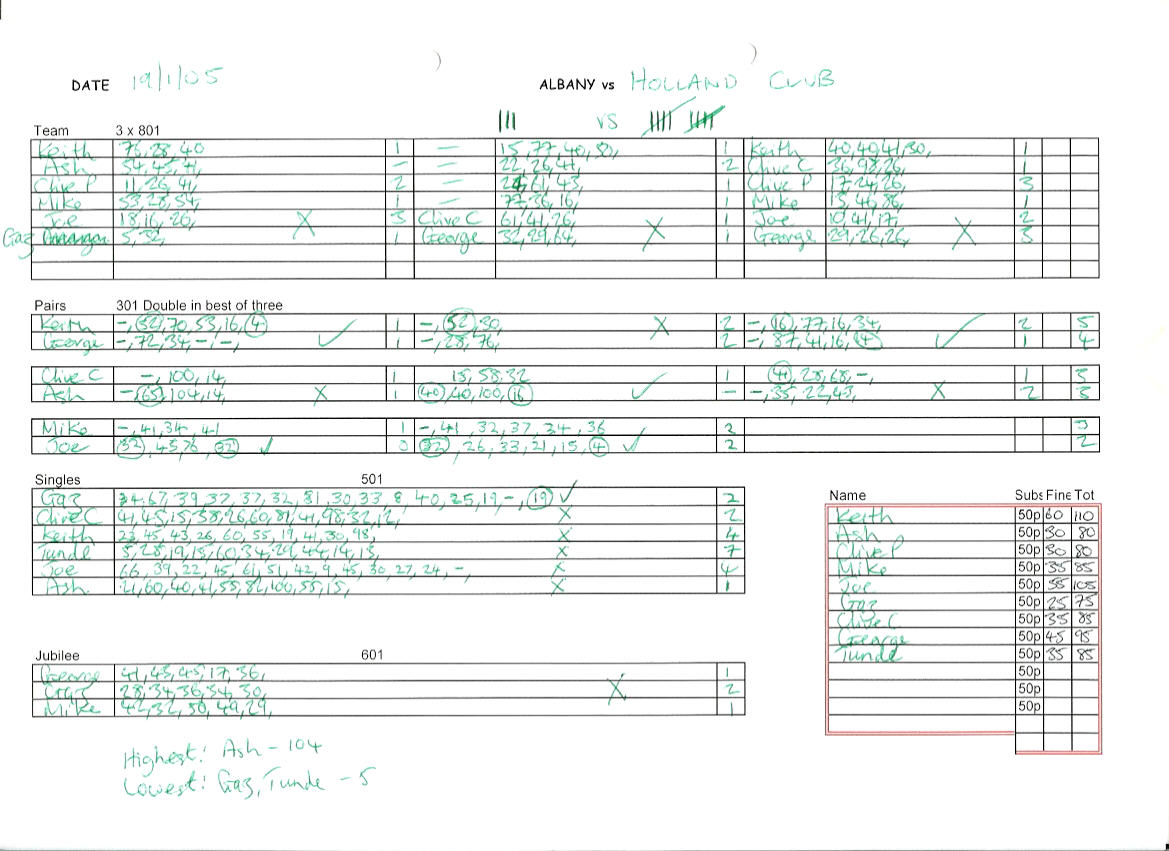 DATE 19/1/05 ALBANY vs HOLLAND CLUB
||| VS
Team 3 x 801
Keith 76, 28, 40 1 — 15, 77, 40, 50, 1 Keith 40, 49, 41, 30, 1
Ash 54, 45, 41, — — 22, 26, 41, 2 Clive C 36, 98, 26, 1
Clive P 11, 26, 41, 2 — 24, 61, 43, 1 Clive P 17, 24, 26, 3
Mike 53, 28, 54, 1 — 77, 36, 16, 1 Mike 15, 46, 86, 1
Joe 18, 16, 26, X 3 Clive C 61, 41, 26, X 1 Joe 10, 41, 17, X 2
Gaz 5, 32, 1 George 32, 29, 64, 1 George 29, 26, 26, 3
Pairs 301 Double in best of three
Keith -, 52, 70, 53, 16, 4 1 -, 52, 30, X 2 -, 16, 77, 16, 34, 2 5
George -, 72, 34, -, -, ✓ 1 -, 28, 76, 2 -, 87, 41, 16, 4 ✓ 1 4
Clive C -, 100, 14, 1 15, 58, 32 1 41, 28, 68, -, 1 3
Ash -, 65, 104, 14, X 1 40, 40, 100, 16 ✓ — -, 35, 22, 43, X 2 3
Mike -, 41, 34, 41 1 -, 41, 32, 37, 34, 36 2 3
Joe 32, 45, 76, 32 ✓ 0 32, 26, 33, 21, 15, 4 ✓ 2 2
Singles 501
Gaz 34, 67, 39, 37, 37, 32, 81, 30, 33, 8, 40, 25, 19, -, 19 ✓ 2
Clive C 41, 45, 15, 58, 26, 60, 81, 41, 98, 32, 12, X 2
Keith 23, 45, 43, 26, 60, 55, 19, 41, 30, 98, X 4
Tunde 5, 28, 19, 15, 60, 34, 29, 44, 14, 13, X 7
Joe 66, 39, 22, 45, 61, 51, 42, 9, 45, 30, 27, 24, -, X 4
Ash 21, 60, 40, 41, 55, 82, 100, 55, 15, X 1
Name Subs Fine Tot
Keith 50p 60 110
Ash 50p 30 80
Clive P 50p 30 80
Mike 50p 35 85
Joe 50p 55 105
Gaz 50p 25 75
Clive C 50p 35 85
George 50p 45 95
Tunde 50p 35 85
50p
50p
50p
Jubilee 601
George 41, 43, 45, 17, 36, 1
Gaz 28, 34, 36, 54, 30, X 2
Mike 42, 32, 50, 49, 29, 1
Highest: Ash - 104
Lowest: Gaz, Tunde - 5